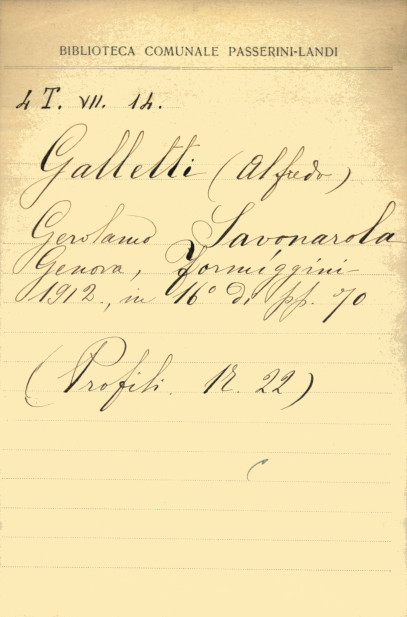 BIBLIOTECA COMUNALE PASSERINI-LANDI
4 T. VII. 14.
Galletti (Alfredo)
Gerolamo Savonarola
Genova, Formiggini
1912., in 16° di pp. 70
(Profili. N. 22)